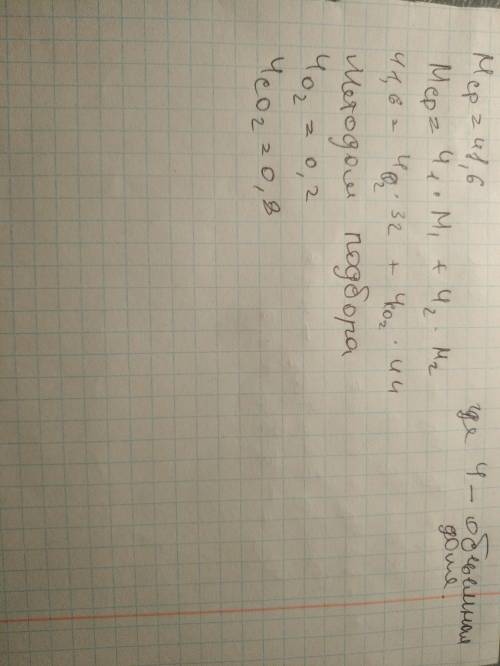 Mср = 41,6
Mср = Ч1 · M1 + Ч2 · M2 где Ч – объемная доля.
41,6 = ЧO2 · 32 + ЧCO2 · 44
Методом подбора
ЧO2 = 0,2
ЧCO2 = 0,8